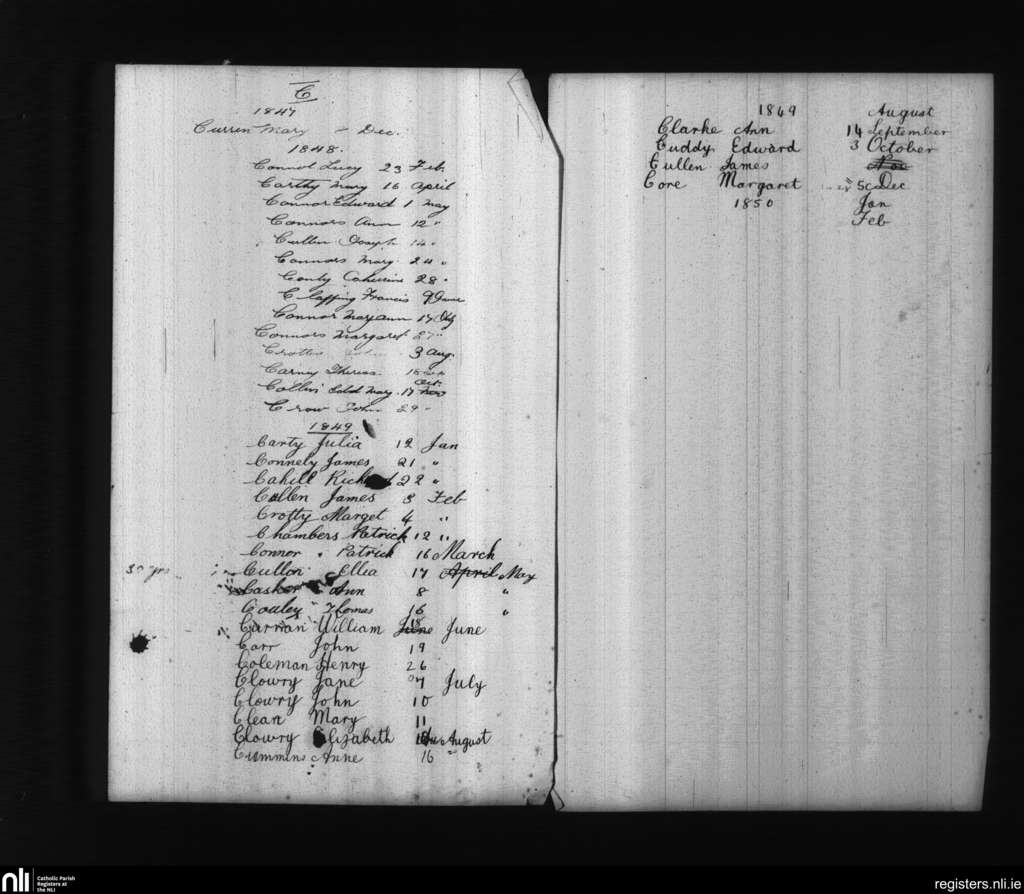 C
1847
Curren Mary - Dec.
1848.
Connol Lucy 23 Feb.
Carthy Mary 16 April
Connor Edward 1 May
Connors Ann 12 "
Cullen Joseph 14 "
Connors Mary 24 "
Conly Catherine 28 "
Clapping Francis 9 June
Connor Maryann 17 July
Connors Margaret 27 "
3 Aug.
Carney Theresa 18
Oct.
Collin Mary 17 Nov
Crow John 29 "
1849
Carty Julia 12 Jan
Connely James 21 "
Cahill Rich 22 "
Cullen James 3 Feb
Crotty Marget 4 "
Chambers Patrick 12 "
Connor Patrick 16 March
30 yrs Cullen Ellea 17 April May
Ann 8 "
Thomas 16 "
Curran William 18 June June
Carr John 19
Coleman Henry 26
Clowry Jane 7 July
Clowry John 10
Clean Mary 11
Clowry Elizabeth August
Cummins Anne 16 "
1849 August
Clarke Ann 14 September
Cuddy Edward 3 October
Cullen James Nov
Core Margaret Dec
1850 Jan
Feb
nli
Catholic Parish
Registers at
the NLI
registers.nli.ie